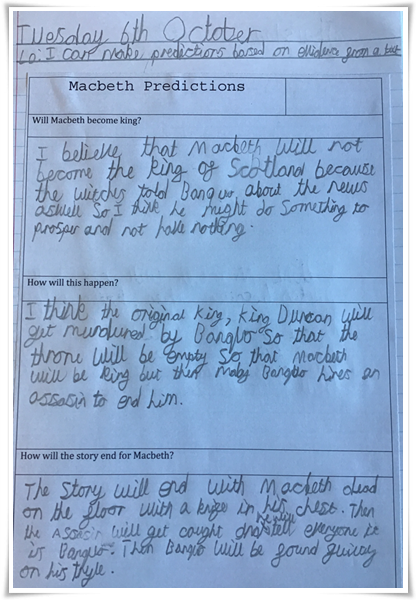 Tuesday 6th October
Lo: I can make predictions based on evidence from a text
Macbeth Predictions
Will Macbeth become king?
I believe that Macbeth will not
become the king of Scotland because
the witches told Banquo about the news
aswell So I think he might do Something to
prosper and not have nothing.
How will this happen?
I think the original king, king Duncan will
get murdured by Bangbo So that the
throne will be empty So that Macbeth
will be king but then maby Bangbo hires an
assasin to end him.
How will the story end for Macbeth?
The Story will end with Macbeth dead
on the floor with a knife in his chest. Then
the Assasin will get caught and he will tell everyone it
is Banquo. Then Banqo will be found guilty
on his